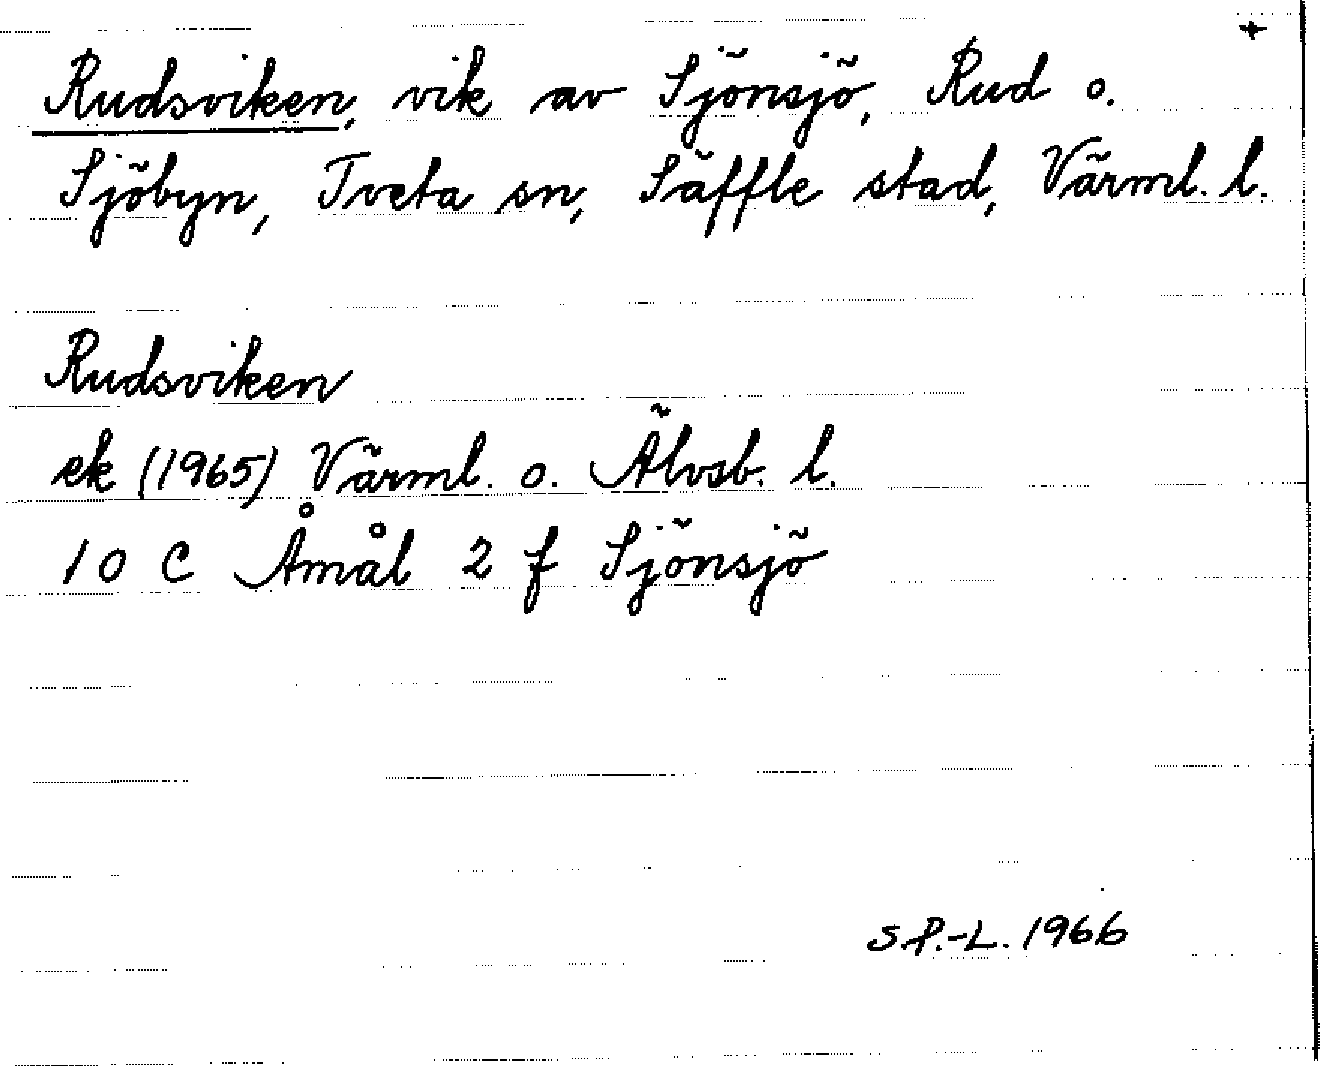 +
Rudsviken, vik av Sjönsjö, Rud o.
Sjöbyn, Tveta sn, Säffle stad, Värml. l.
Rudsviken
ek (1965) Värml. o. Älvsb. l.
10 C Åmål 2 f Sjönsjö
S.P.-L. 1966